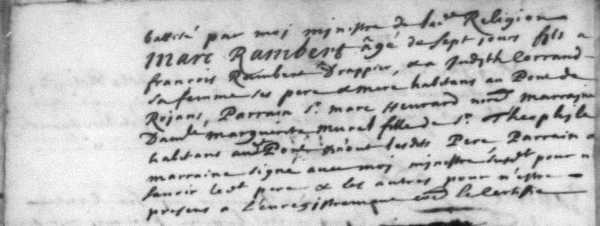 battisé par moy ministre de lad. Religion
Marc Rambert âgé de sept jours fils a
francois Rambert Drappier, & a Judith Lorrand
sa femme ses pere & mere habitans au Pont de
Royans, Parrain Sr. marc marraine
Damle marguerite muret fille de Sr. Theophile
habitans aud. Pont lesdits Pere Parrain &
marraine signé avec moy ministre susdt pour n
sauoir led. pere & les autres pour n'estre
presens a L'enregistrement Le Certifie